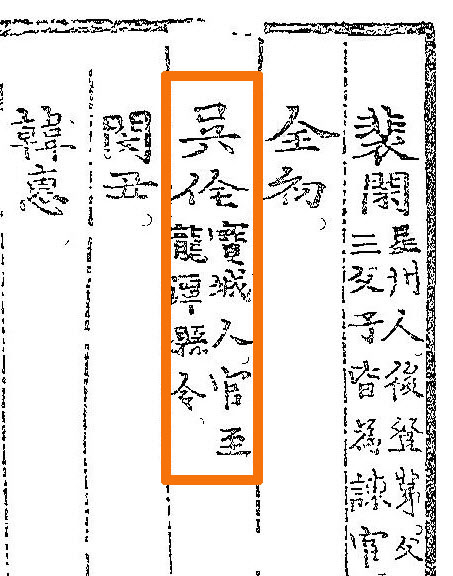 裴閑
星州人後登第父
三父子皆爲諫官
全初
吳佺
寶城人官至
龍潭縣令
閔丑
韓惠